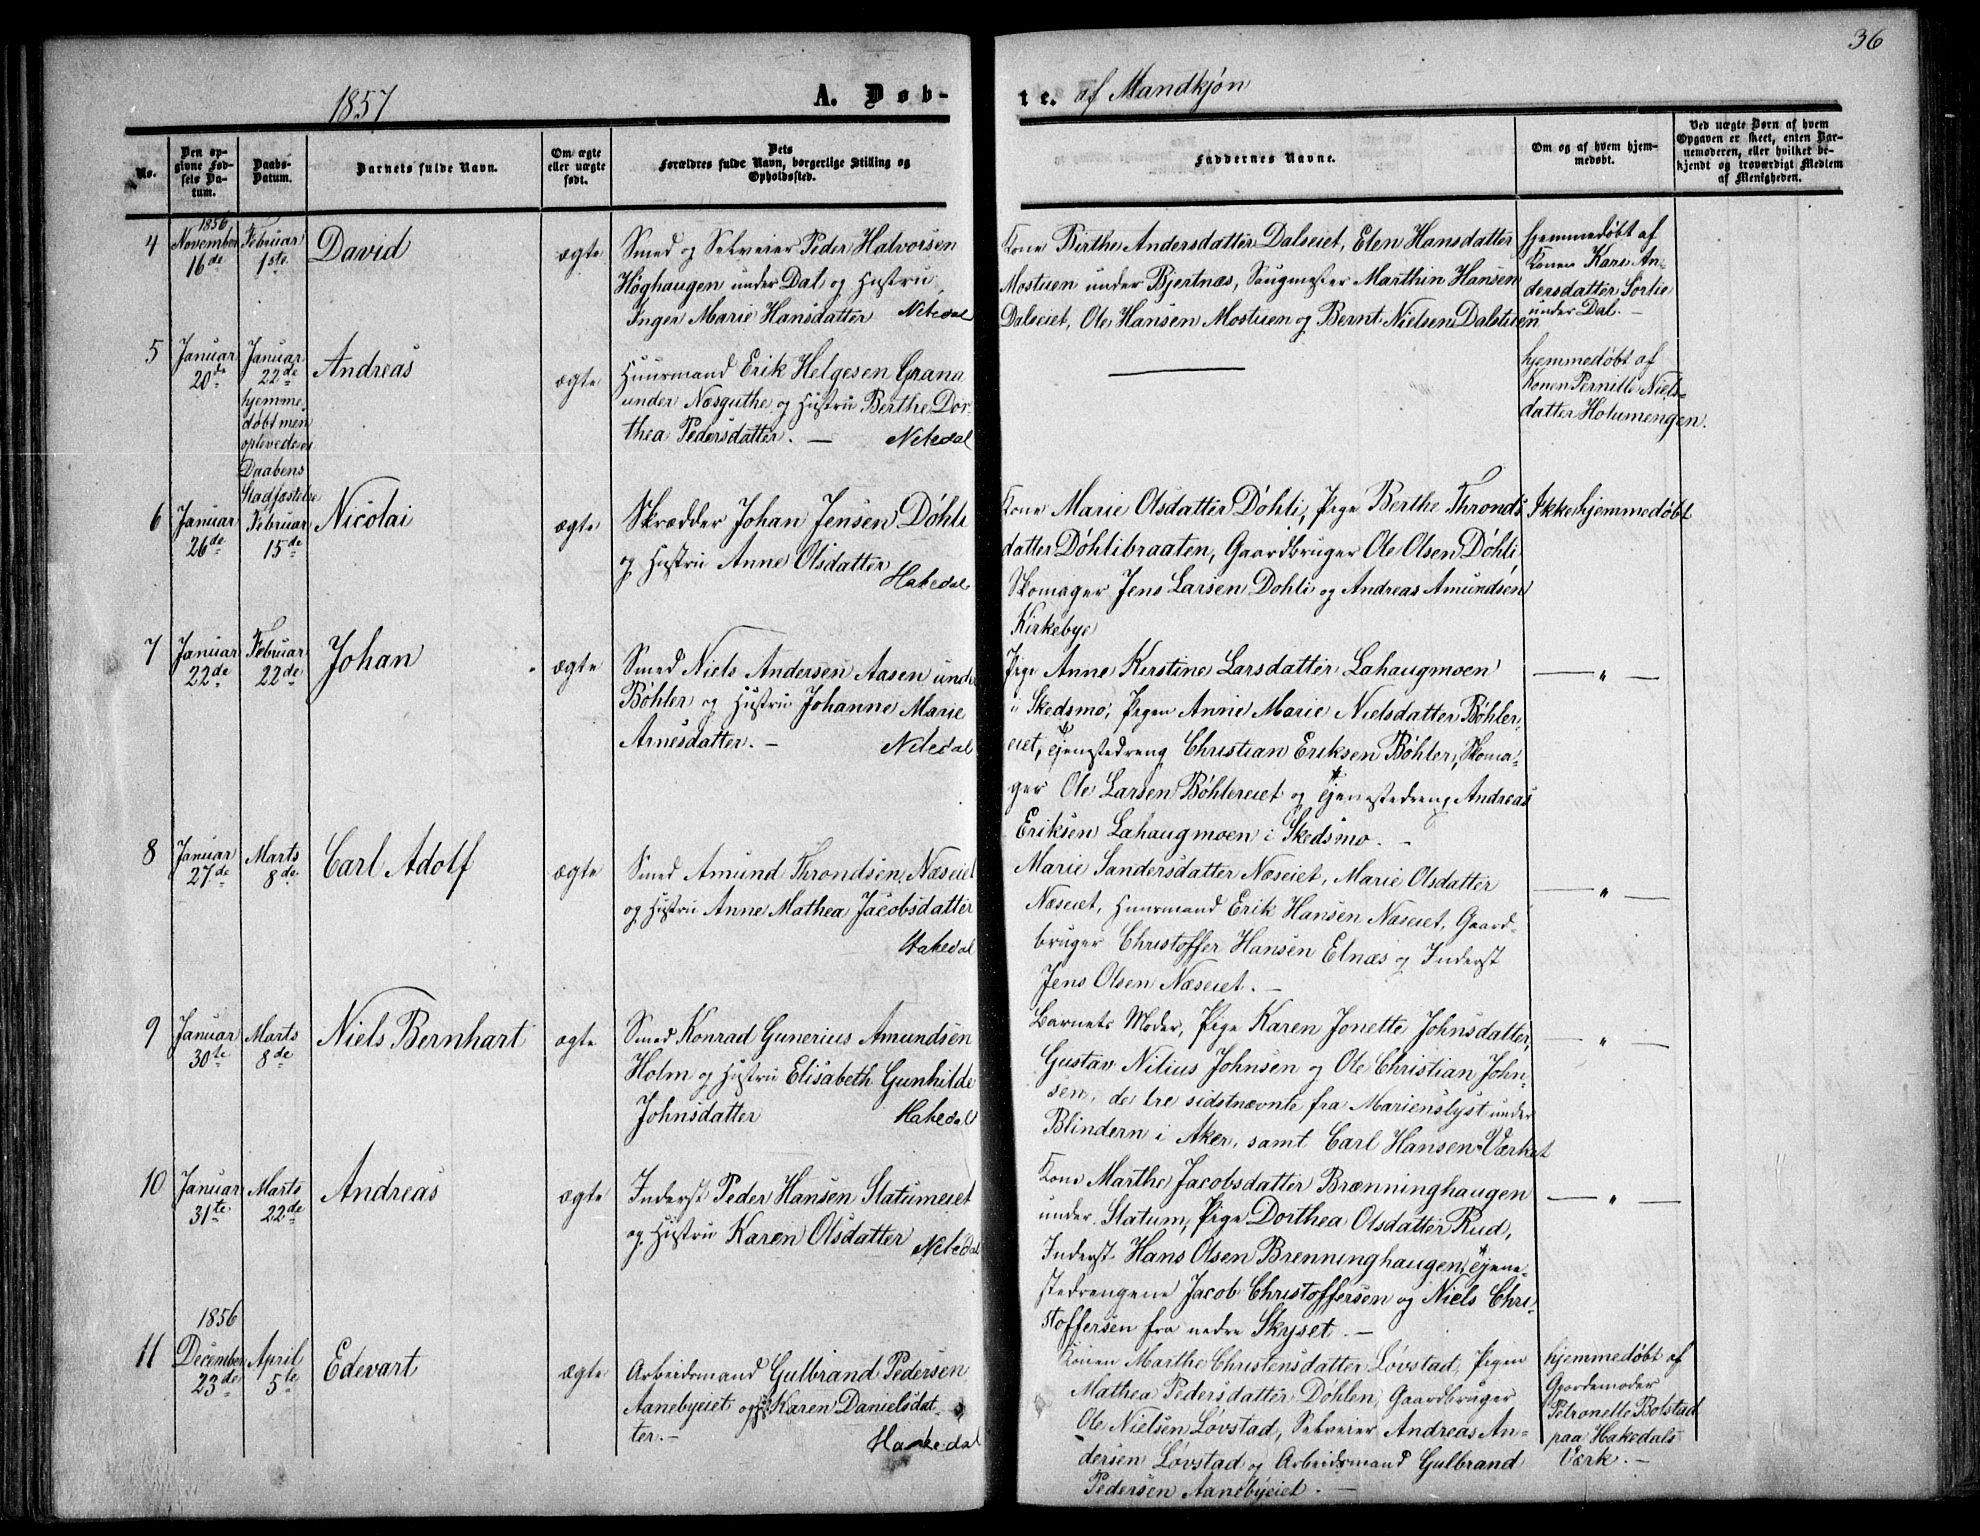 36
1857
A. Døb-
te. af Mandkjøn
No.
Den op-
givne Fød-
sels Da-
tum.
Daabs-
Datum.
Barnets fulde Navn.
Om ægte
eller uægte
født.
Dets
Forældres fulde Navn, borgerlige Stilling og
Opholdssted.
Faddernes Navne.
Om og af hvem hjem-
medøbt.
Ved uægte Børn af hvem
Opgaven er skeet, enten Bar-
nemoderen, eller hvilket be-
kjendt og troværdigt Medlem
af Menigheden.
4
1856
November
16de
Februar
1ste
David
ægte
Smed og Selveier Peder Halvorsen
Høghaugen under Dal og Hustru
Inger Marie Hansdatter Nitedal
Kone Birthe Andersdatter Dalseiet, Elen Hansdatter
Mostuen under Bjertnæs, Saugmester Marthin Hansen
Dalseiet, Ole Hansen Mostuen og Bernt Nielsen Dalstuen
hjemmedøbt af
Konen Kari An-
dersdatter Sorlie
under Dal. —
5
Januar
20de
Januar
22de
hjemme-
døbt men
oplevede ei
Daabens
Stadfæstelse
Andreas
ægte
Huusmand Erik Helgesen Grana
under Næsguthe og Hustru Berthe Dor-
thea Pedersdatter. — Nitedal
hjemmedøbt af
Konen Pernille Niels-
datter Holumengen.
6
Januar
26de
Februar
15de
Nicolai
ægte
Skrædder Johan Jensen Døhli
og Hustru Anne Olsdatter
Hakedal
Kone Marie Olsdatter Døhli, Pige Berthe Thronds
datter Døhlibraaten, Gaardbruger Ole Olsen Døhli
Skomager Jens Larsen Dohli og Andreas Amundsen
Kirkebye
Ikke hjemmedøbt
7
Januar
22de
Februar
22de
Johan
ægte
Smed Niels Andersen Aasen under
Bøhler og Hustru Johanne Marie
Arnesdatter. — Nitedal
Pige Anne Kirstine Larsdatter Lahaugmoen
i Skedsmo, Pigen Anne Marie Nielsdatter Bøhler-
eiet, Tjenestedreng Christian Eriksen Bøhler, Skoma-
ger Ole Larsen Bøhlereiet og Tjenestedreng Andreas
Eriksen Lahaugmoen i Skedsmo. —
— " —
8
Januar
27de
Marts
8de
Carl Adolf
ægte
Smed Amund Throndsen Næseiet
og Hustru Anne Mathea Jacobsdatter
Hakedal
Marie Sandersdatter Næseiet, Marie Olsdatter
Næseiet, Huusmand Erik Hansen Næseiet, Gaard-
bruger Christoffer Hansen Elnæs og Inderst
Jens Olsen Næseiet. —
— " —
9
Januar
30te
Marts
8de
Niels Bernhart
ægte
Smed Konrad Gunerius Amundsen
Holm og Hustru Elisabeth Gunhilde
Johnsdatter Hakedal
Barnets Moder, Pige Karen Jonette Johnsdatter,
Gustav Nilius Johnsen og Ole Christian John-
sen, de tre sidstnævnte fra Marienslyst under
Blindern i Aker, samt Carl Hansen Værket
— " —
10
Januar
31te
Marts
22de
Andreas
ægte
Inderst Peder Hansen Slatumeiet
og Hustru Karen Olsdatter Nitedal
Kone Marthe Jacobsdatter Brænninghaugen
under Slatum, Pige Dorthea Olsdatter Rud,
Inderst Hans Olsen Brenninghaugen, Tjene-
stedrengene Jacob Christoffersen og Niels Chri-
stoffersen fra nedre Skyset. —
— " —
11
1856
December
23de
April
5te
Edevart
ægte
Arbeidsmand Gulbrand Pedersen
Aanebyeiet og Karen Danielsdat-
ter. —
Hakedal
Konen Marthe Christensdatter Løvstad, Pigen
Mathea Pedersdatter Døhlen, Gaardbruger
Ole Nielsen Løvstad, Selveier Andreas An-
dersen Løvstad og Arbeidsmand Gulbrand
Pedersen Aanebyeiet. —
hjemmedøbt af
Gjordemoder
Petronelle Bolstad
paa Hakedals
Værk. —